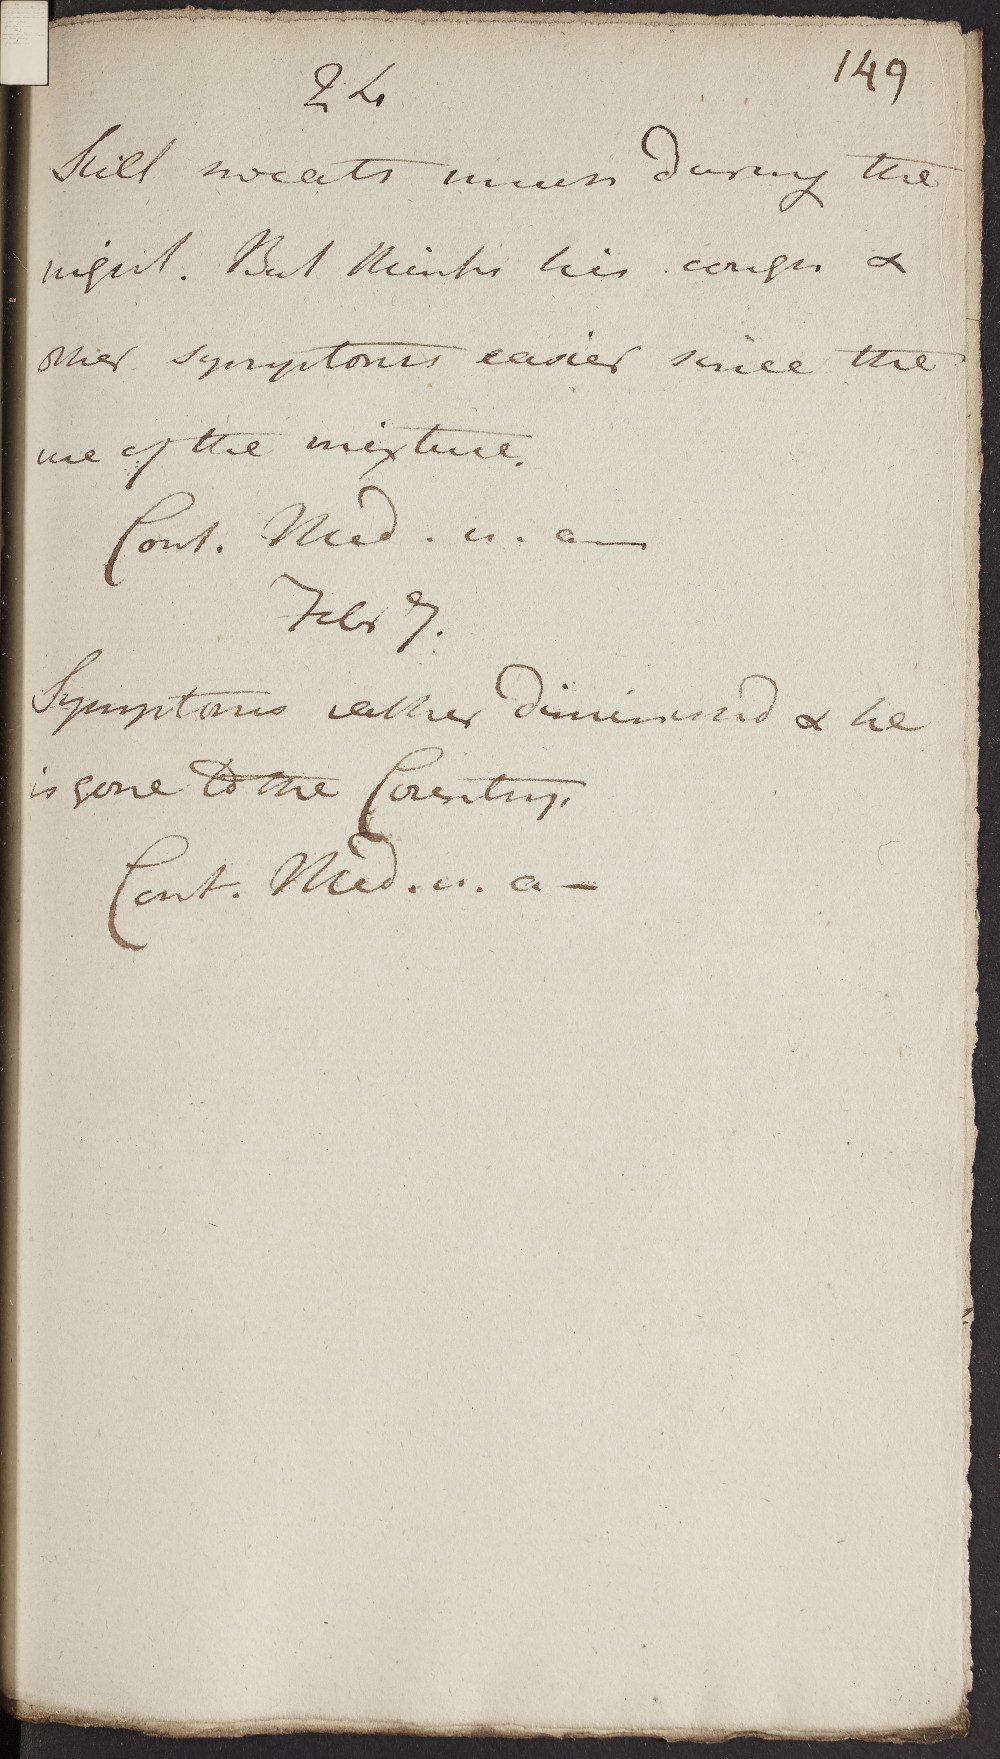 149
24
Still sweats much during the
night. But thinks his cough &
other symptoms easier since the
use of the mixture.
Cont. Med. u. a—
Feb 7.
Symptoms rather diminishd & he
is gone to the Country.
Cont. Med. u. a—